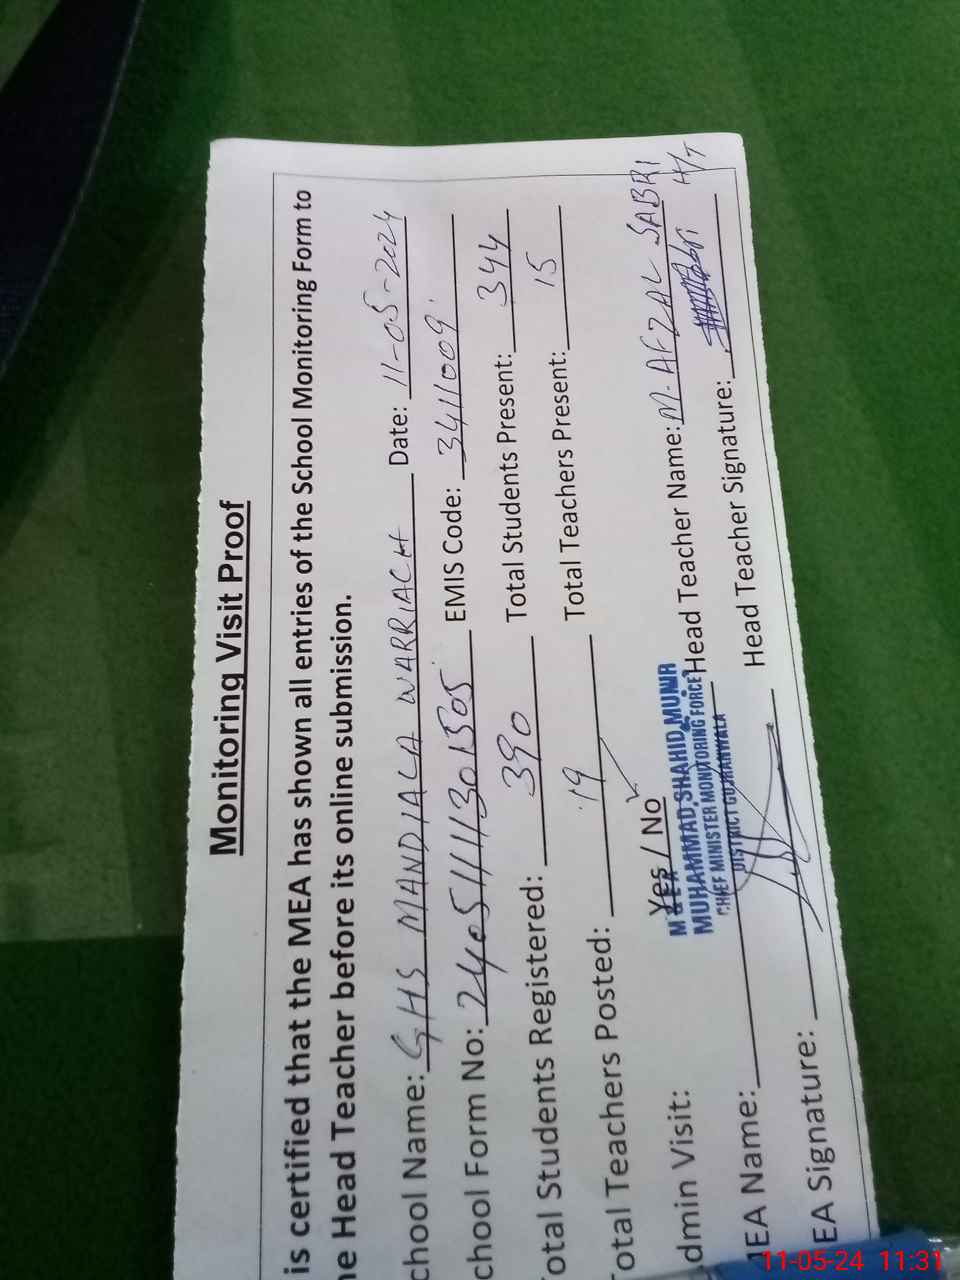 Monitoring Visit Proof
is certified that the MEA has shown all entries of the School Monitoring Form to
he Head Teacher before its online submission.
chool Name: GHS MANDIALA WARRIACH Date: 11-05-2024
chool Form No: EMIS Code: 3411009
otal Students Registered: 390 Total Students Present: 344
otal Teachers Posted: 19 Total Teachers Present: 15
dmin Visit: Yes / No
M & EA
MUHAMMAD SHAHID MUNIR
CHIEF MINISTER MONITORING FORCE
DISTRICT GUJRANWALA
MEA Name: Head Teacher Name: M. AFZAL SABRI
H/T
EA Signature: Head Teacher Signature:
11-05-24 11:31